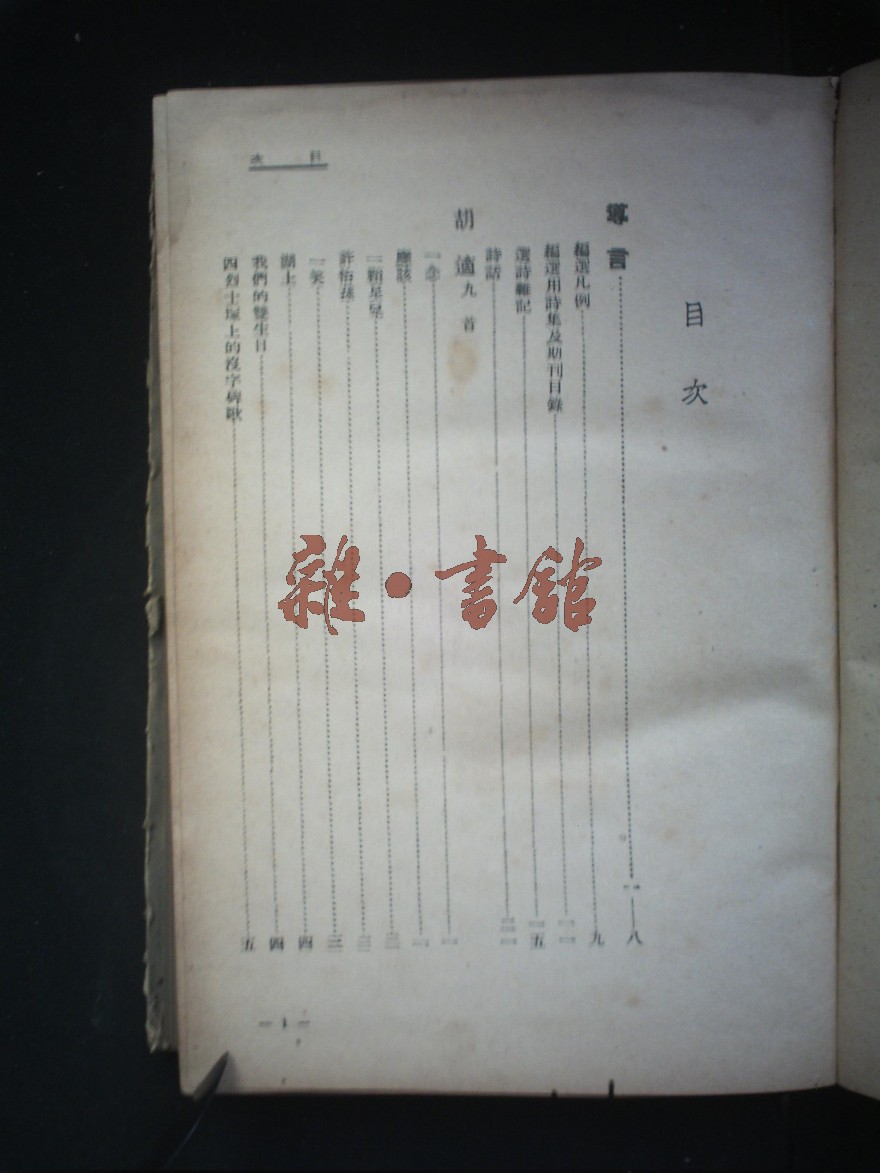 目次
目次
導言……一——八
編選凡例……九
編選用詩集及期刊目錄……一一
選詩雜記……一五
詩話
胡適九首
一念……一
應該
一顆星兒
許怡蓀……三
一笑……三
湖上……四
我們的雙生日……四
四烈士塚上的沒字碑歌……五
— 1 —
雜·書館